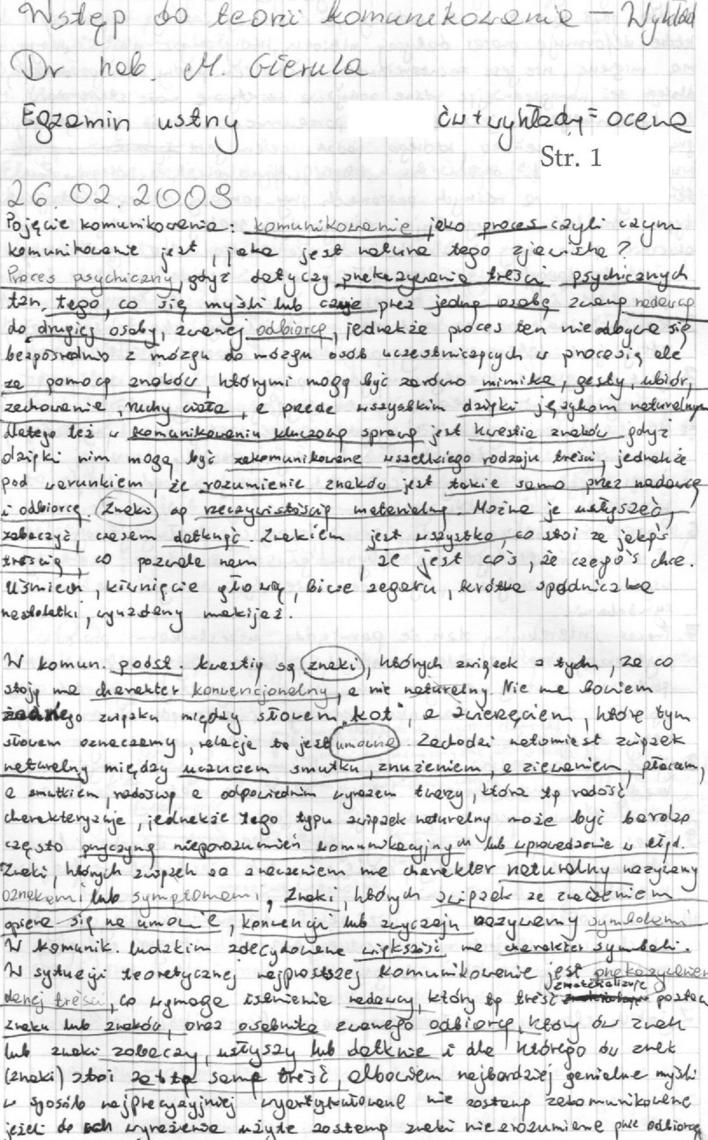 Wstęp do teorii komunikowania – Wykład
Dr hab. M. Gierula
Egzamin ustny ćw + wykłady = ocena
Str. 1
26.02.2009
Pojęcie komunikowania: komunikowanie jako proces czyli czym
komunikowanie jest, jaka jest natura tego zjawiska?
Proces psychiczny, gdyż dotyczy przekazywania treści psychicznych
tzn. tego, co się myśli lub czuje przez jedną osobę zwaną nadawcą
do drugiej osoby, zwanej odbiorcą, jednakże proces ten nie odbywa się
bezpośrednio z mózgu do mózgu osób uczestniczących w procesie ale
za pomocą znaków, którymi mogą być zarówno mimika, gesty, ubiór,
zachowanie, ruchy ciała, a przede wszystkim dzięki językom naturalnym
dlatego też w komunikowaniu kluczową sprawą jest kwestia znaków gdyż
dzięki nim mogą być zakomunikowane wszelkiego rodzaju treści, jednakże
pod warunkiem, że rozumienie znaków jest takie samo przez nadawcę
i odbiorcę. Znaki są rzeczywistością materialną. Można je usłyszeć,
zobaczyć, czasem dotknąć. Znakiem jest wszystko, co stoi za jakąś
treścią, co pozwala nam , że jest coś, że czegoś chce.
Uśmiech, kiwnięcie głową, bicie zegara, krótka spódniczka
nastolatki, wyuzdany makijaż.
W komun. podst. kwestią są znaki, których związek z tym, za co
stoją ma charakter konwencjonalny, a nie naturalny. Nie ma bowiem
żadnego związku między słowem "kot", a zwierzęciem, które tym
słowem oznaczamy, relacja ta jest umowna. Zachodzi natomiast związek
naturalny między uczuciem smutku, znużeniem, a ziewaniem, płaczem,
a smutkiem, radością a odpowiednim wyrazem twarzy, która tą radość
charakteryzuje, jednakże tego typu związek naturalny może być bardzo
często przyczyną nieporozumień komunikacyjnych lub wprowadzenia w błąd.
Znaki, których związek ze znaczeniem ma charakter naturalny nazywamy
oznakami lub symptomami, znaki, których związek ze znaczeniem
opiera się na umowie, konwencji lub zwyczaju nazywamy symbolami
W komunik. ludzkim zdecydowana większość ma charakter symboli.
W sytuacji teoretycznej najprostszej komunikowanie jest przekazywaniem
danej treści, co wymaga istnienia nadawcy, który tą treść zmaterializuje w postaci
znaku lub znaków, oraz osobnika zwanego odbiorcą, który ów znak
lub znaki zobaczy, usłyszy lub dotknie i dla którego ów znak
(znaki) stoi za tą samą treść, albowiem najbardziej genialne myśli
w sposób najprecyzyjniej wyartykułowane nie zostaną zakomunikowane
jeżeli do ich wyrażenia użyte zostaną znaki niezrozumiane przez odbiorcę